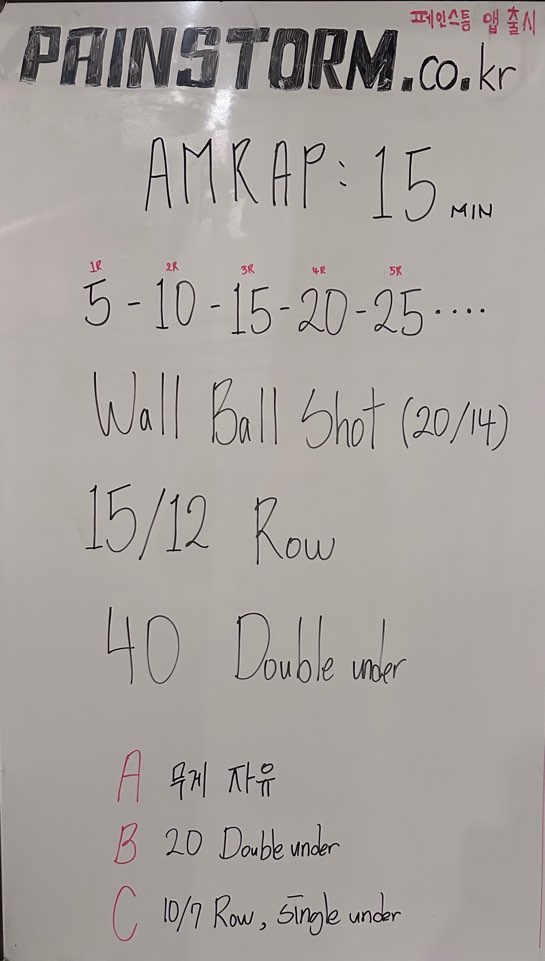 페인스톰 앱 출시
PAINSTORM.co.kr
AMRAP: 15 MIN
1R 2R 3R 4R 5R
5-10-15-20-25....
Wall Ball Shot (20/14)
15/12 Row
40 Double under
A 무게 자유
B 20 Double under
C 10/7 Row, Single under